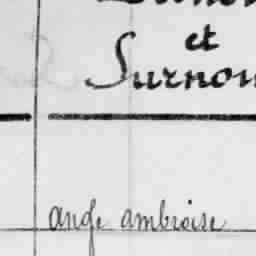 et
Surnom
ange ambroise